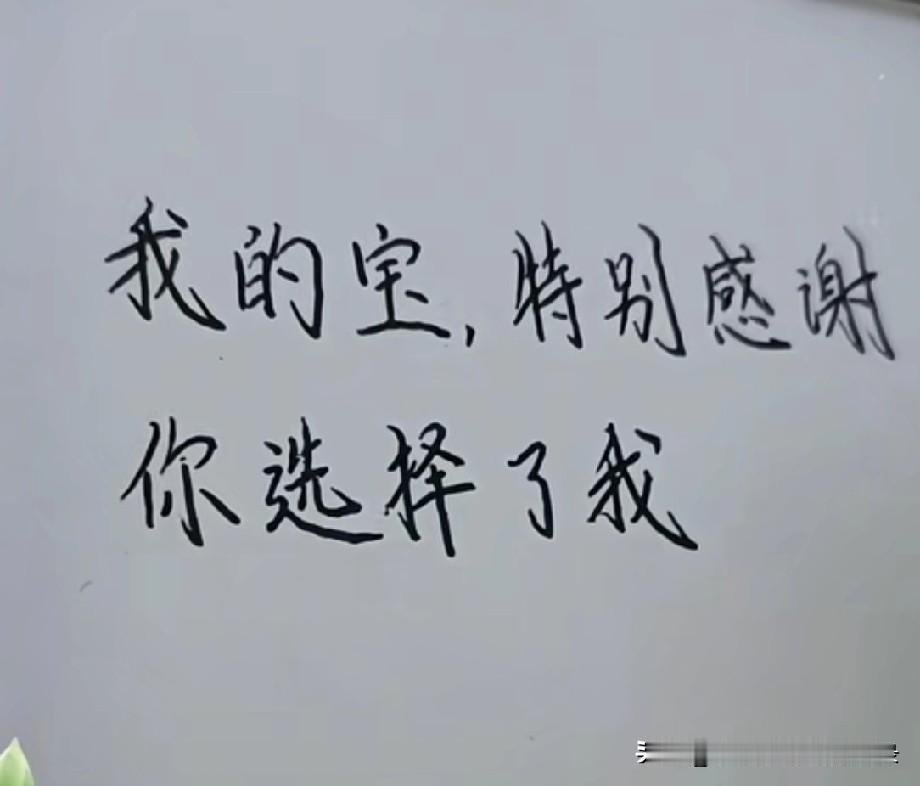 我的宝,特别感谢
你选择了我